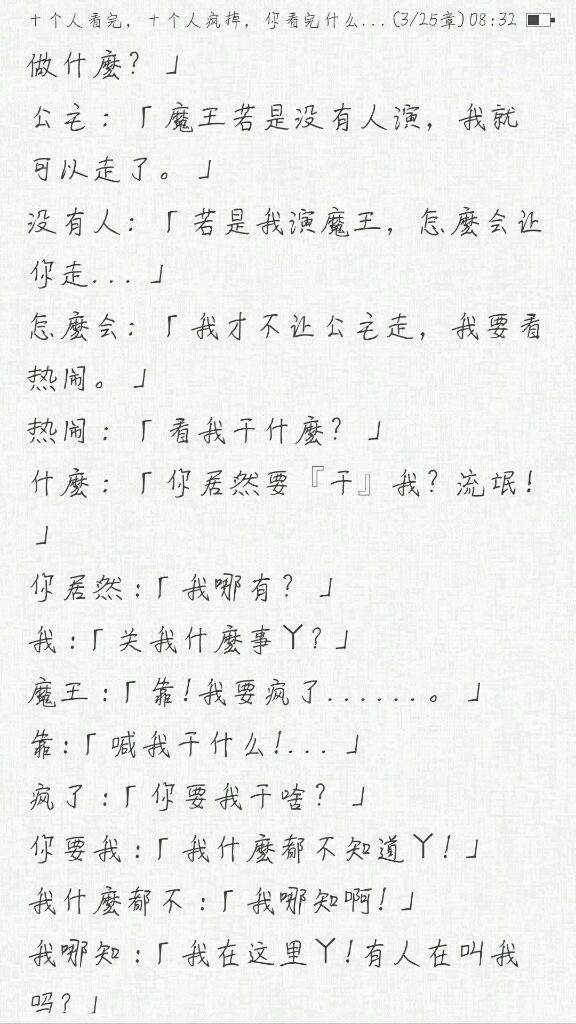 十个人看完，十个人疯掉，你看完什么...(3/25章)08:32
做什麼？」
公主：「魔王若是没有人演，我就
可以走了。」
没有人：「若是我演魔王，怎麼会让
你走...」
怎麼会：「我才不让公主走，我要看
热闹。」
热闹：「看我干什麼？」
什麼：「你居然要『干』我？流氓！
」
你居然：「我哪有？」
我：「关我什麼事丫？」
魔王：「靠！我要疯了......。」
靠：「喊我干什么！...」
疯了：「你要我干啥？」
你要我：「我什麼都不知道丫！」
我什麼都不：「我哪知啊！」
我哪知：「我在这里丫！有人在叫我
吗？」